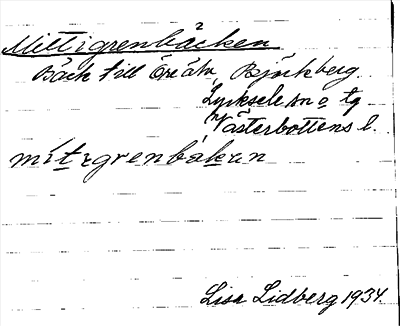 Mittigrenbäcken
Bäck till Öreälv, Björkberg
Lycksele sn o. tg
Västerbottens l.
mitigrenbäkan
Lisa Lidberg 1934.